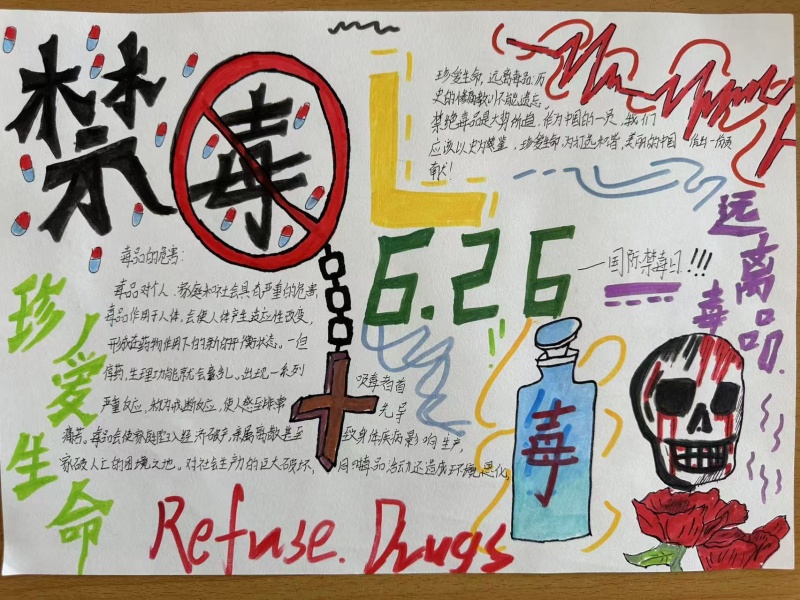 禁毒
珍爱生命,远离毒品,历
史的伤痛教训不能遗忘。
禁绝毒品是大势所趋,作为中国的一员,我们
应该以史为鉴,珍爱生命,为打造和谐、美丽的中国作出一份贡
献!
6.26
——国际禁毒日!!!
远离
毒品
毒品的危害:
毒品对个人、家庭和社会具有严重的危害,
毒品作用于人体,会使人体产生适应性改变,
形成在药物作用下的新的平衡状态。一但
停药,生理功能就会紊乱。出现一系列
严重反应,称为戒断反应,使人感到非常
痛苦。毒品会使家庭陷入经济破产,亲属离散甚至
家破人亡的困境之地。对社会生产力的巨大破坏,
吸毒者首
先导
致身体疾病影响生产,
同时毒品活动还造成环境恶化。
珍爱
生命
毒
Refuse. Drugs